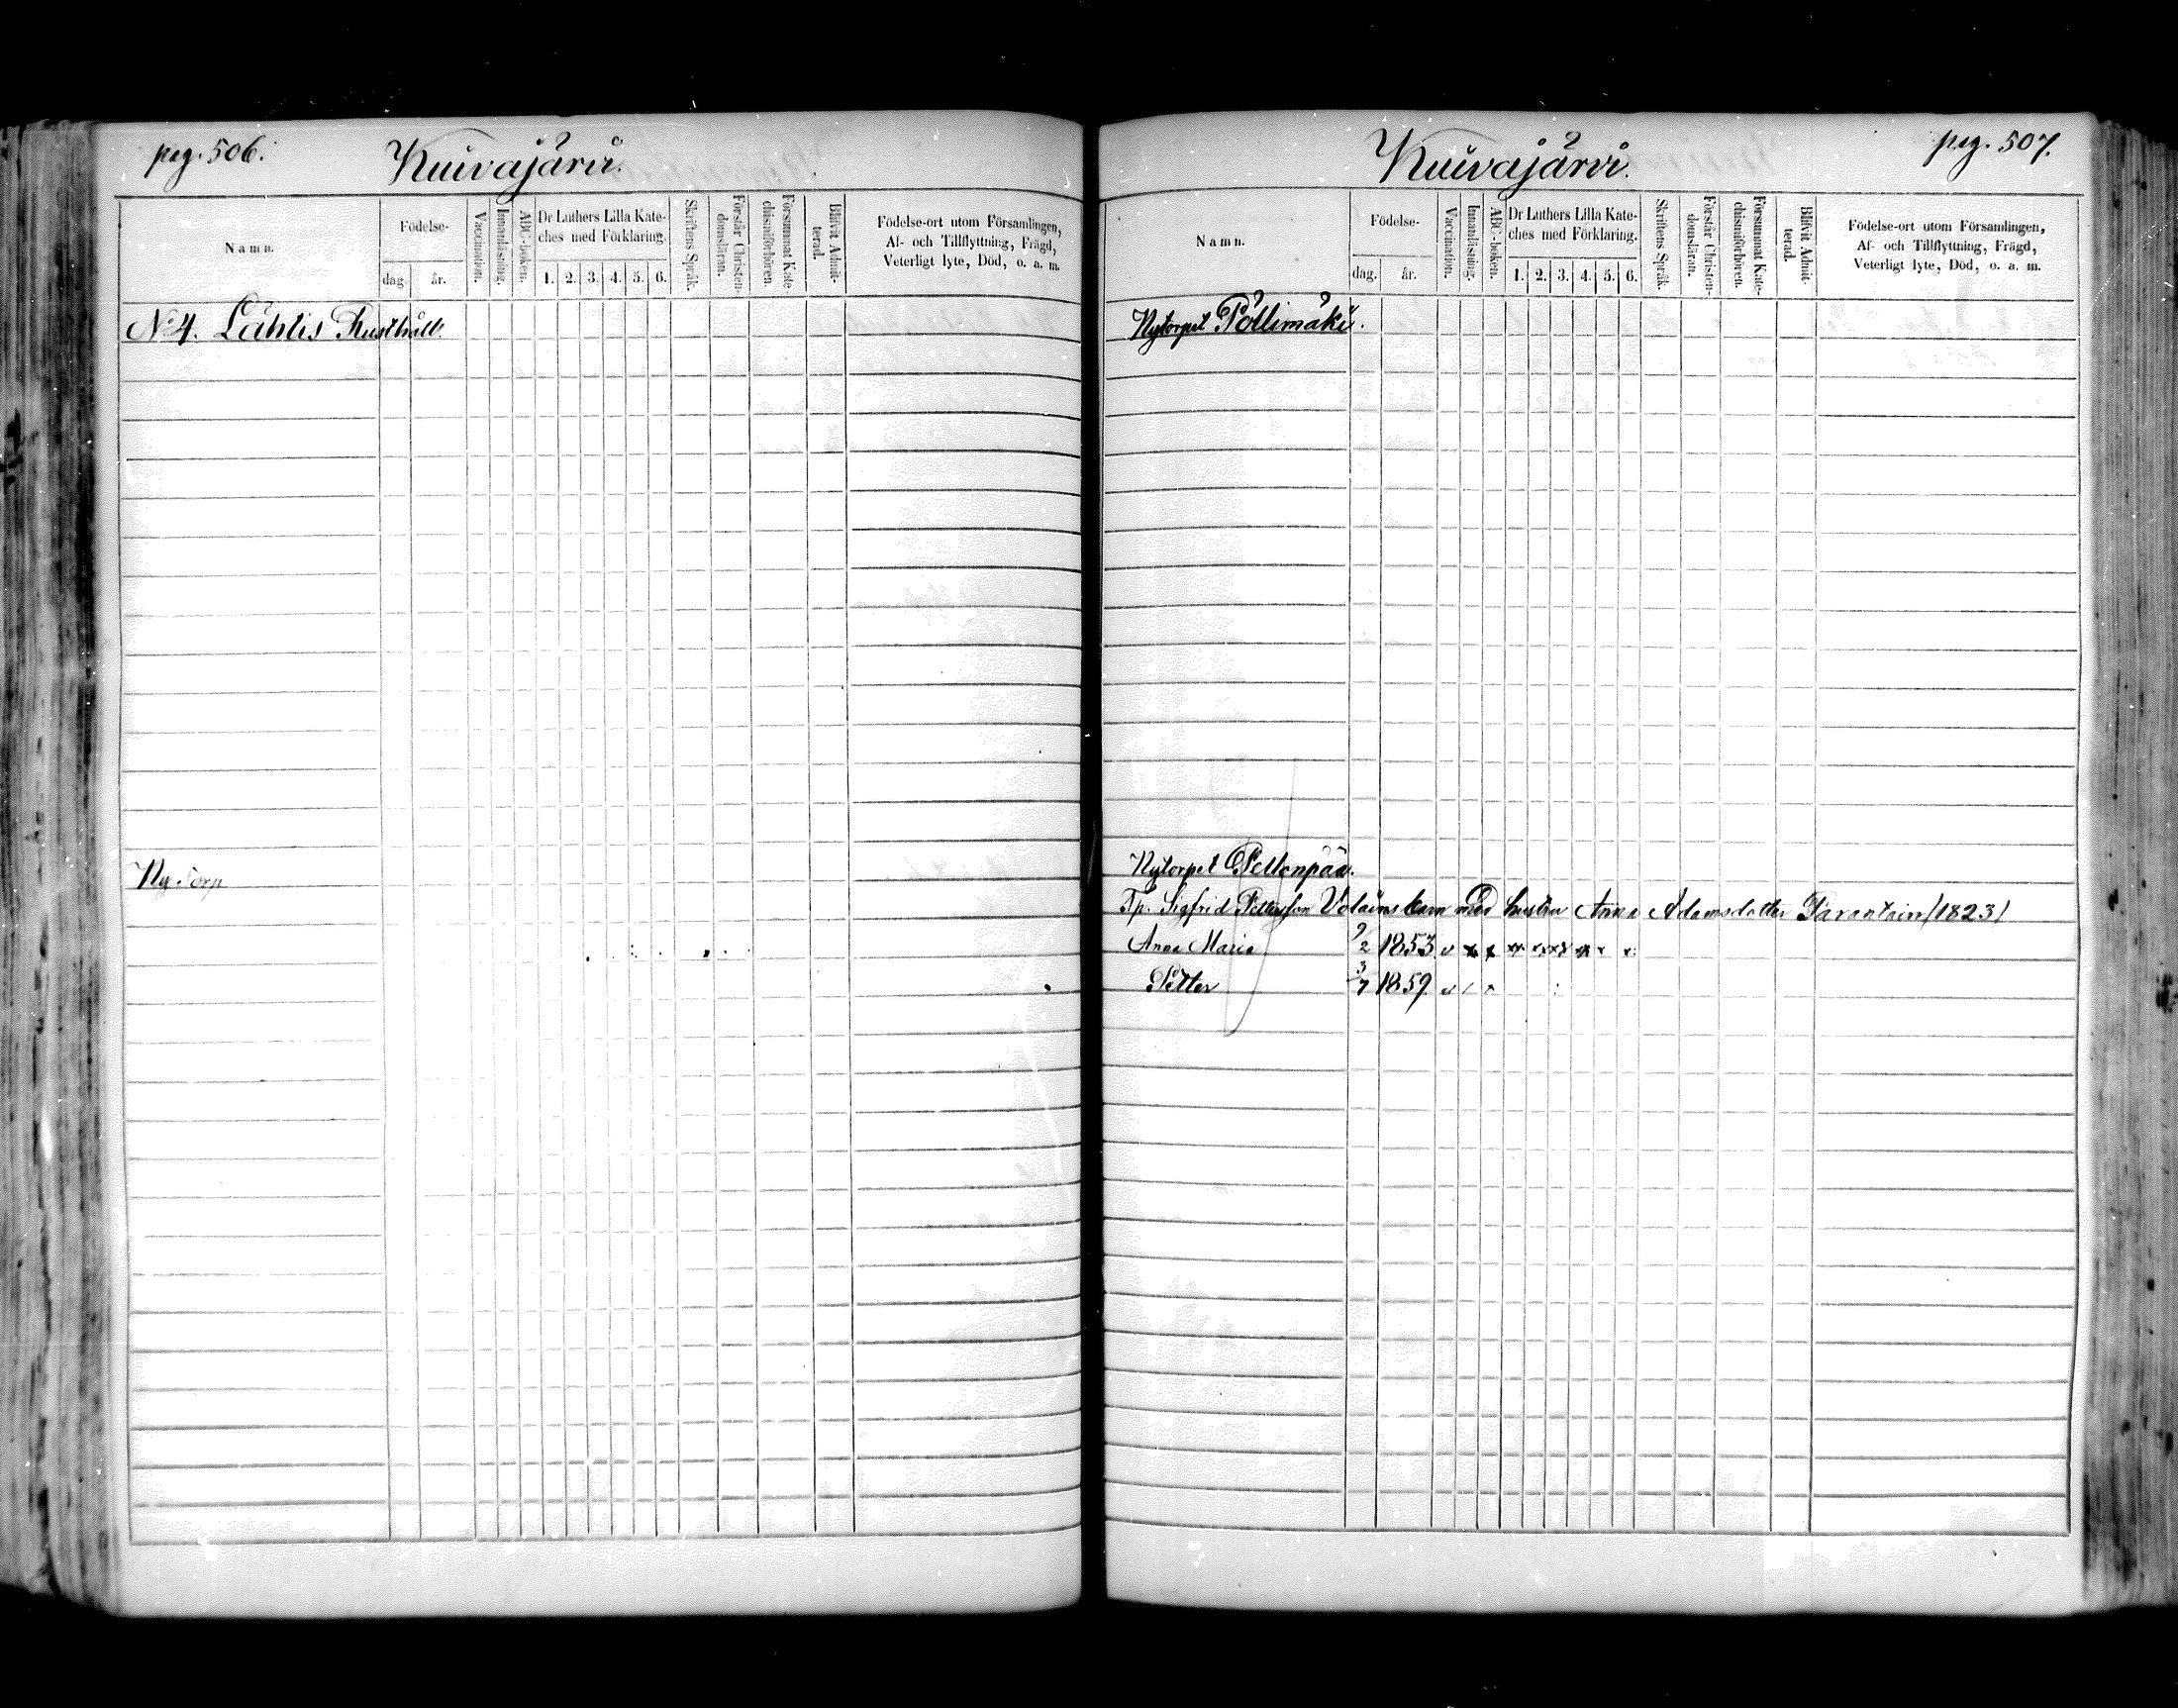 pag. 506.
Kuivajärvi.
Namn.
Födelse-
dag.
år.
Vaccination.
Innanläsning.
ABC-boken.
Dr Luthers Lilla Kate-
ches med Förklaring.
1. 2. 3. 4. 5. 6.
Skriftens Språk.
Förstår Christen-
domsläran.
Försummat Kate-
chismiförhören.
Blifvit Admit-
terad.
Födelse-ort utom Församlingen,
Af- och Tillflyttning, Frägd,
Veterligt lyte, Död, o. a. m.
No 4. Lahtis Rusthåll.
Ny Torp
pag. 507.
Kuivajärvi.
Namn.
Födelse-
dag.
år.
Vaccination.
Innanläsning.
ABC-boken.
Dr Luthers Lilla Kate-
ches med Förklaring.
1. 2. 3. 4. 5. 6.
Skriftens Språk.
Förstår Christen-
domsläran.
Försummat Kate-
chismiförhören.
Blifvit Admit-
terad.
Födelse-ort utom Församlingen,
Af- och Tillflyttning, Frägd,
Veterligt lyte, Död, o. a. m.
Nytorpet Pöllimäki.
Nytorpet Pellonpää.
Tp. Sigfrid Pettersson barn med hustru Anna Adamsdotter (1823)
Anna Maria 9/2 1853
Petter 3/7 1859